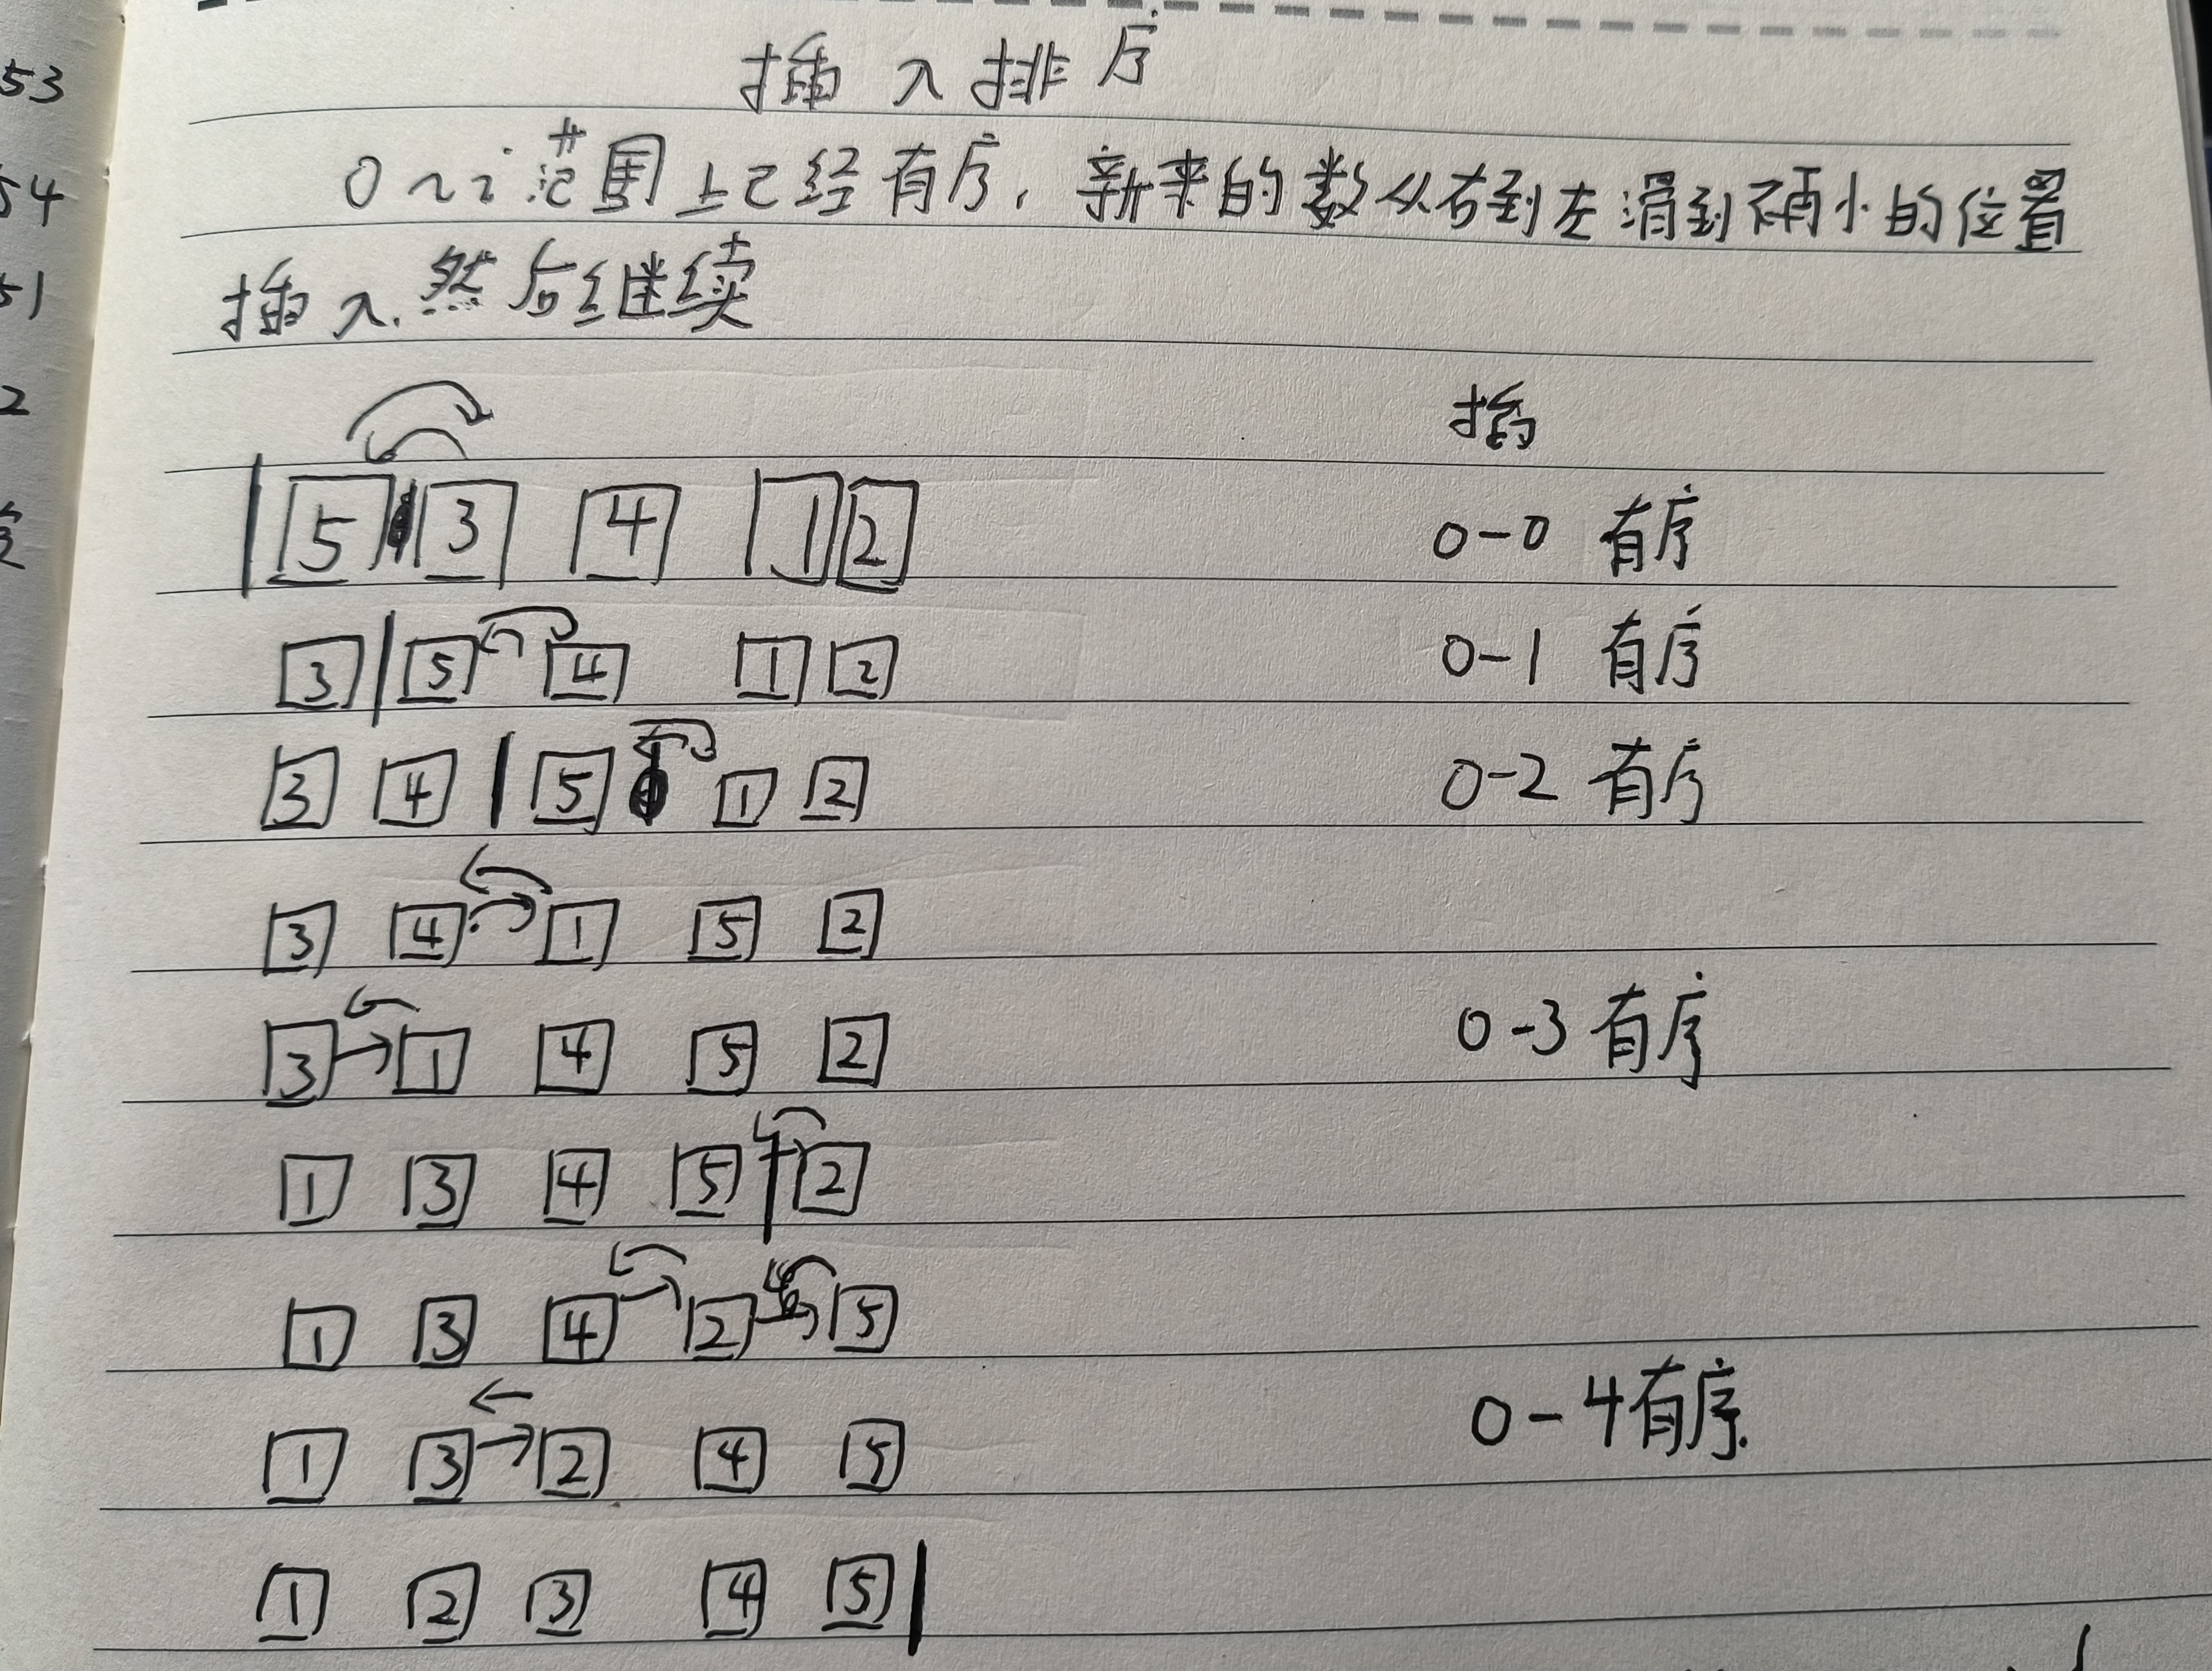 插入排序
0~i 范围上已经有序，新来的数从右到左滑到不再小的位置
插入.然后继续
5 3 4 1 2 0-0 有序
3 5 4 1 2 0-1 有序
3 4 5 1 2 0-2 有序
3 4 1 5 2
3 1 4 5 2 0-3 有序
1 3 4 5 2
1 3 4 2 5
1 3 2 4 5 0-4有序.
1 2 3 4 5
53
54
51
2